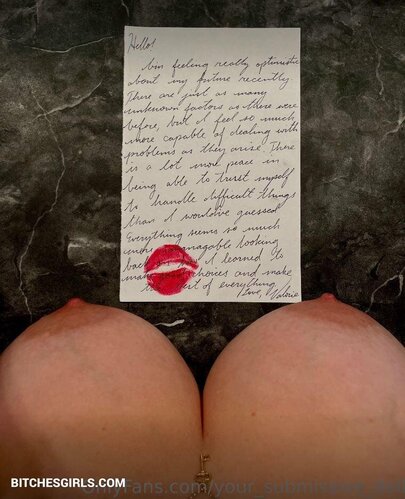 Hello!
Am feeling really optimistic
about my future recently
There are just as many
unknown factors as there were
before, but I feel so much
more capable of dealing with
problems as they arise. There
is a lot more peace in
being able to trust myself
to handle difficult things
than I would've guessed
Everything seems so much
more managable looking
back I learned to
choices and make
of everything
Love, Valerie
BITCHESGIRLS.COM
OnlyFans.com/your_submissive_